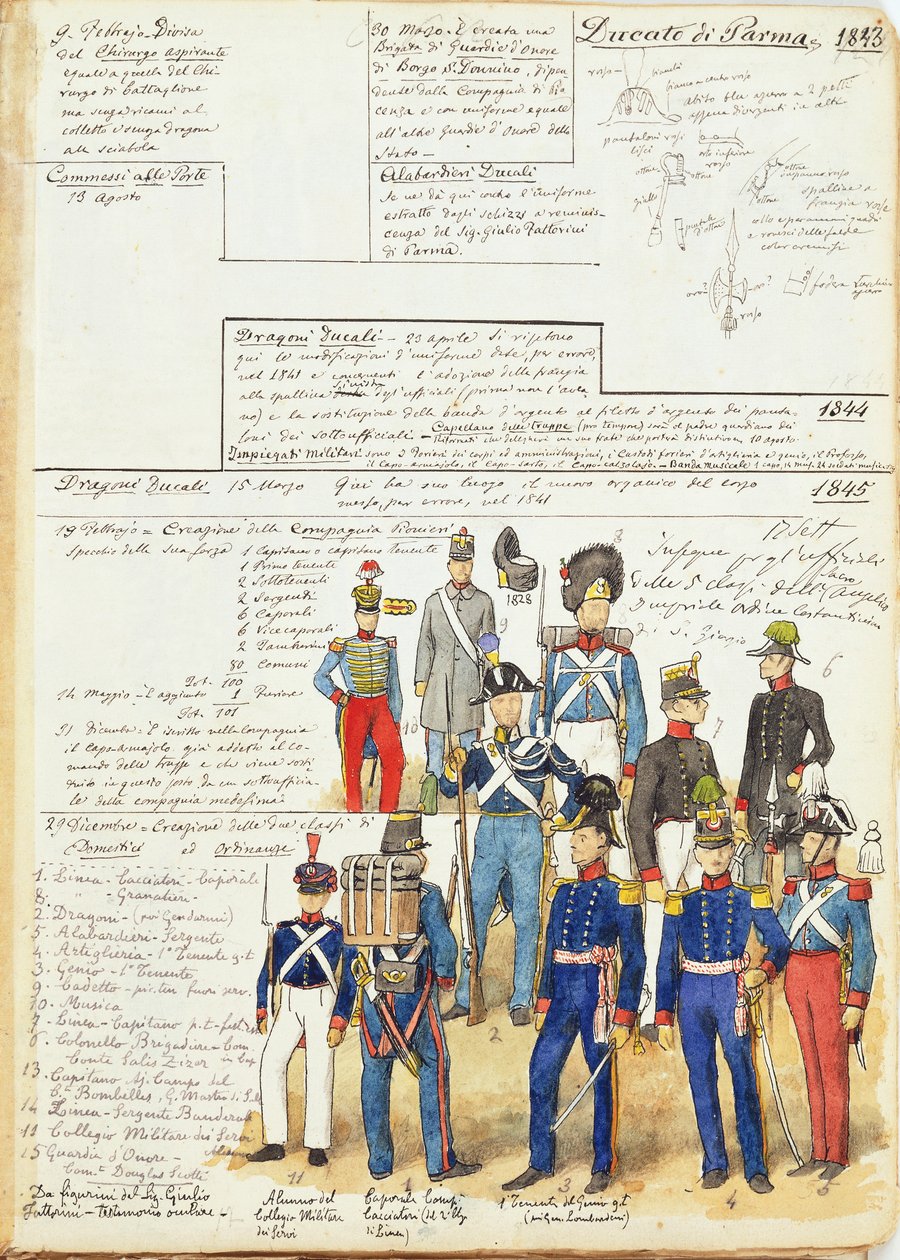 Ducato di Parma 1843
9. Febbrajo - Divisa
del Chirurgo aspirante
eguale a quella del Chi-
rurgo di battaglione
ma senza ricami al
colletto e senza dragona
alla sciabola
Commessi alle Porte
13 agosto
30 Marzo. È creata una
Brigata di Guardie d'Onore
di Borgo Sn. Donnino, dipen
dente dalla Compagnia di Pia
cenza e con uniforme eguale
all'altre Guardie d'Onore dello
Stato -
Alabardieri Ducali
Se ne dà qui contro l'uniforme
estratto dagli schizzi a reminis-
cenza del Sig. Giulio Fattorini
di Parma.
rosso
bianco - centro rosso
abito bleu azzurro a 2 petti
appena divergenti in alto
pantaloni rossi
lisci
orlo inferiore
rosso
ottone
ottone
giallo
puntale
d'ottone
ottone
ottone
spalline a
frangia rosse
collo e paramani quadri
e rovesci delle falde
color cremisi
oro?
oro?
rosso
fodera turchino
azzurro
Dragoni Ducali - 23 aprile Si ripetono
qui le modificazioni d'uniforme date, per errore,
nel 1841 e concernenti l'adozione della frangia
alla spallina sinistra degl'ufficiali (prima non l'avea-
no) e la sostituzione della banda d'argento al filetto d'argento dei panta-
loni dei sottoufficiali -
1844
Capellano delle truppe (pro tempore) sarà il padre guardiano dei
Riformati che delegherà un suo frate che porterà distintivo 10 agosto
Impiegati Militari sono i Forieri dei corpi ed amministrazioni, i Custodi forieri d'artiglieria e genio, il Profosso,
il Capo-armajolo, il Capo-sarto, il Capo-calzolajo. - Banda musicale 1 capo, 14 mus. 24 soldati musicanti
Dragoni Ducali 15 Marzo Qui ha suo luogo il nuovo organico del corpo
messo, per errore, nel 1841
1845
19 Febbrajo = Creazione della Compagnia Pionieri
Specchio della sua forza 1 Capitano o capitano tenente
1 Primo tenente
2 Sottotenenti
2 Sergenti
6 Caporali
6 Vicecaporali
2 Tamburini
80 Comuni
Tot. 100
14 Maggio - È aggiunto 1 Foriere
Tot. 101
31 Dicembre: È iscritto nella Compagnia
il Capo-armajolo già addetto al Co-
mando delle truppe e che viene sosti
tuito in questo posto da un sottoufficia-
le della compagnia medesima.
17 Sett
Insegne per gl'ufficiali
delle 5 classi dell' Sacro Angelico
Imperiale Ordine Costantiniano
di S. Giorgio
1828
8
9
10
7
6
2
29 Dicembre = Creazione delle due classi di
Domestici ed Ordinanze
1. Linea - Cacciatori - Caporale
8. " - Granatieri -
2. Dragoni - (poi Gendarmi)
5. Alabardieri - Sergente
4. Artiglieria - 1° Tenente g.t
3. Genio - 1° Tenente
9. Cadetto - pic. ten fuori serv.
10. Musica
7. Linea - Capitano p.t
6. Colonello Brigadiere - Com.
Conte Salis Zizer
13. Capitano Aj. Campo del
Ce. Bombelles, G. Mastro di
14. Linea - Sergente
11 Collegio Militare dei Servi
Alunno
15 Guardia d'Onore -
Comte. Douglas Scotti
Da figurini del Sig. Giulio
Fattorini - testimonio oculare -
11
Alunno del
Collegio Militare
dei Servi
1
Caporale Comp.
Cacciatori (del 2° Bg.
di Linea)
3
1° Tenente del Genio g.t
(in Gen. Lombardini)
4
5